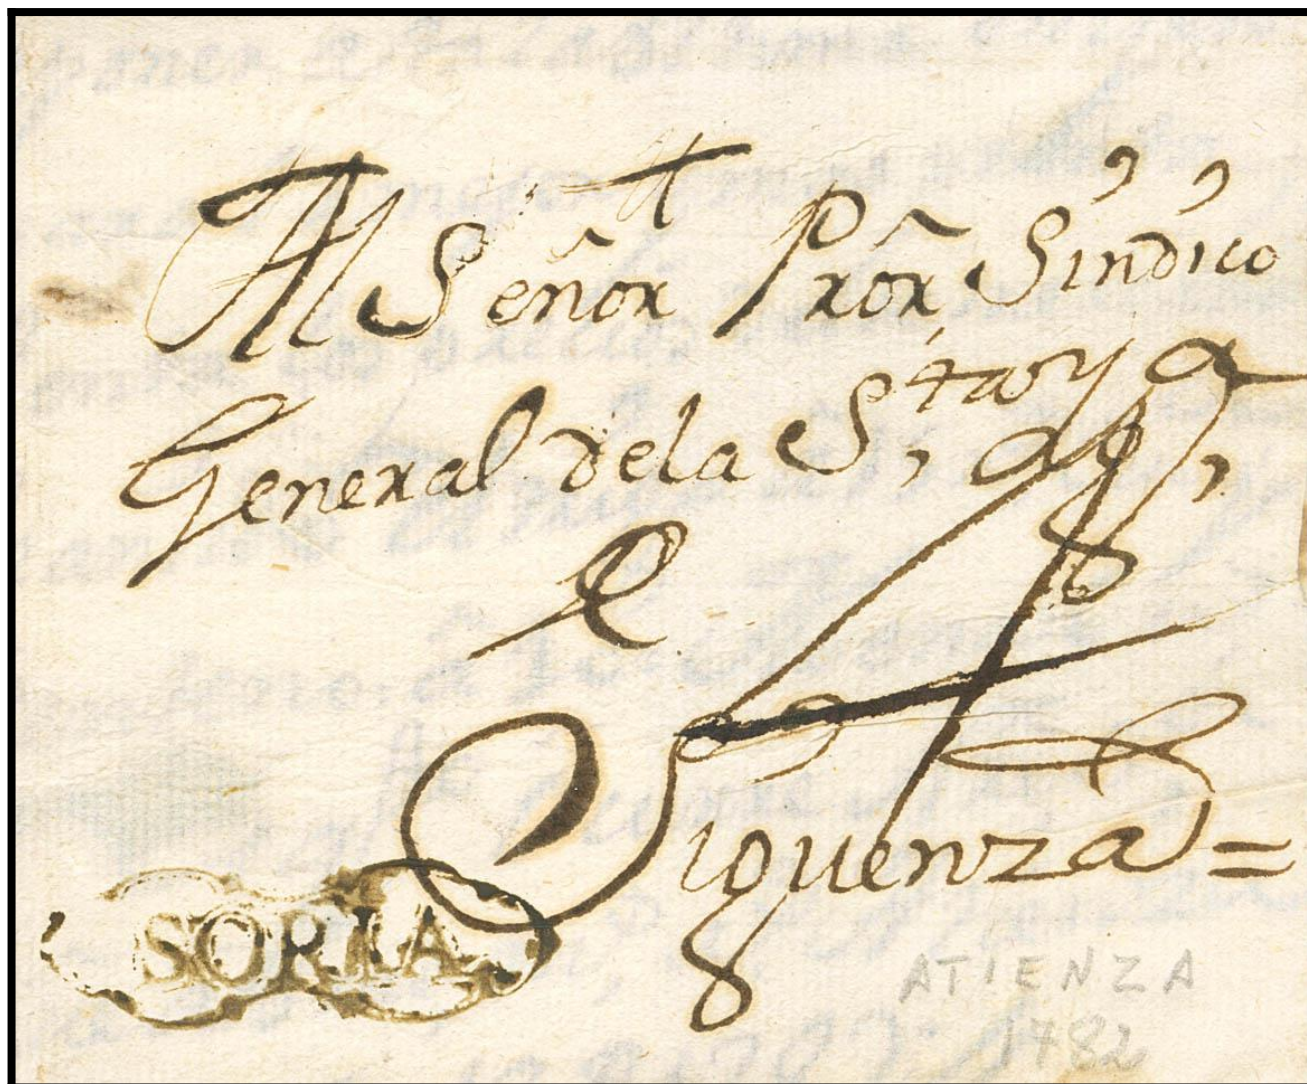 Al Señor Pror Síndico
General dela S,
Siguenza =
SORIA
ATIENZA
1782